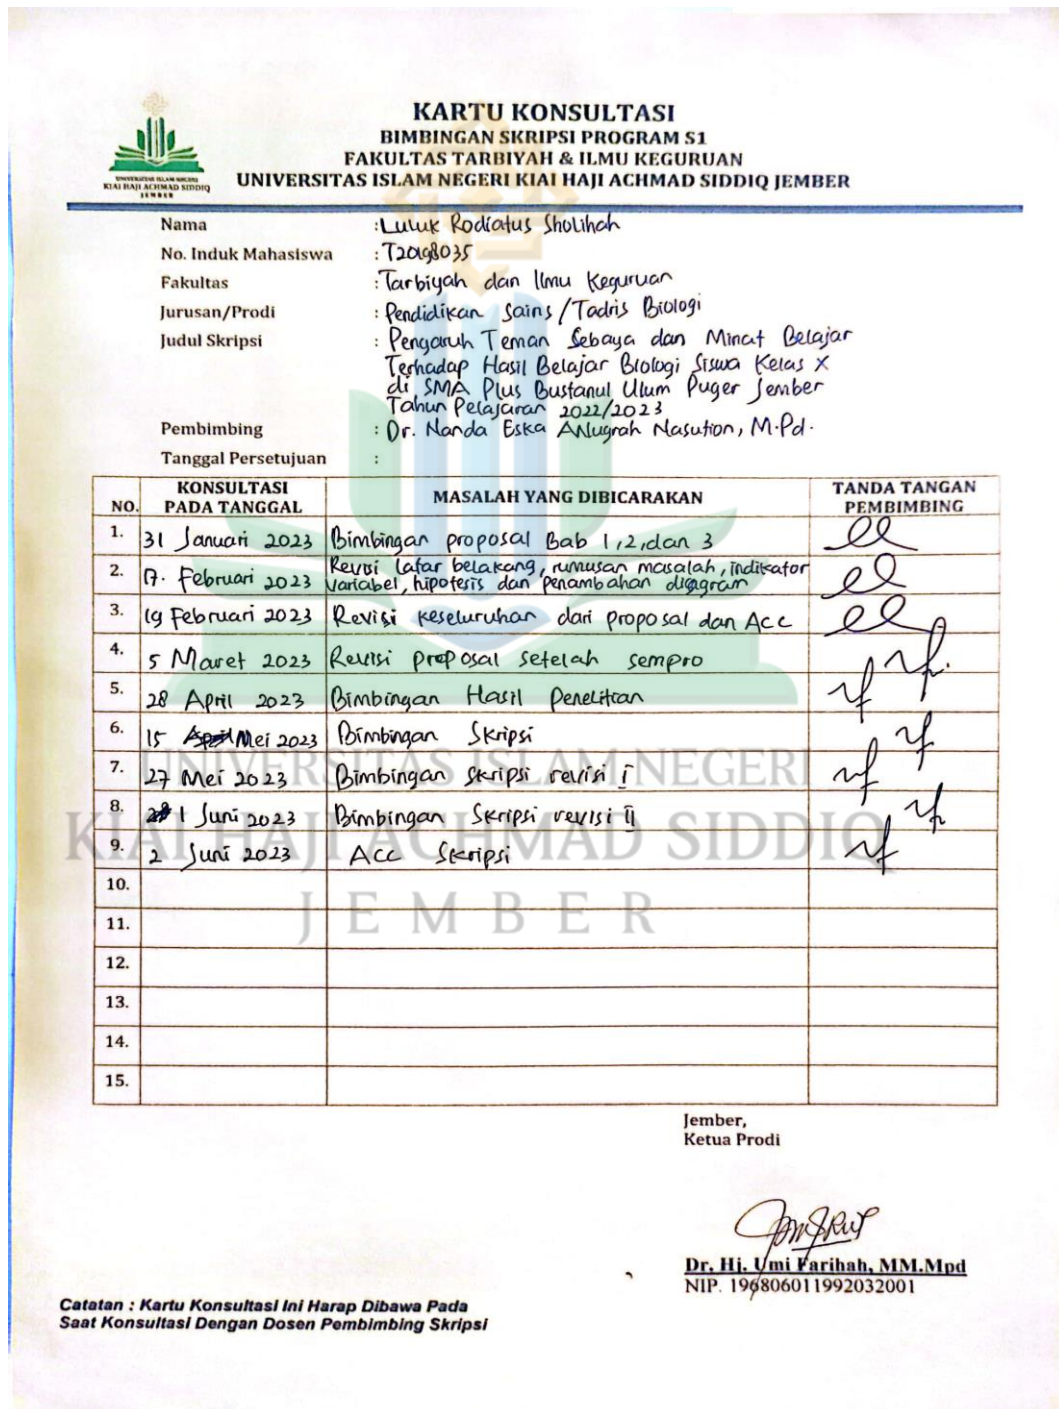 KARTU KONSULTASI
BIMBINGAN SKRIPSI PROGRAM S1
FAKULTAS TARBIYAH & ILMU KEGURUAN
UNIVERSITAS ISLAM NEGERI KIAI HAJI ACHMAD SIDDIQ JEMBER
UNIVERSITAS ISLAM NEGERI
KIAI HAJI ACHMAD SIDDIQ
JEMBER
Nama : Luluk Rodiatus Sholihah
No. Induk Mahasiswa : T20198035
Fakultas : Tarbiyah dan Ilmu Keguruan
Jurusan/Prodi : Pendidikan Sains/Tadris Biologi
Judul Skripsi : Pengaruh Teman Sebaya dan Minat Belajar
Terhadap Hasil Belajar Biologi Siswa Kelas X
di SMA Plus Bustanul Ulum Puger Jember
Tahun Pelajaran 2022/2023
Pembimbing : Dr. Nanda Eska Anugrah Nasution, M.Pd.
Tanggal Persetujuan :
NO. KONSULTASI PADA TANGGAL MASALAH YANG DIBICARAKAN TANDA TANGAN PEMBIMBING
1. 31 Januari 2023 Bimbingan proposal Bab 1,2,dan 3
2. 17. Februari 2023 Revisi latar belakang, rumusan masalah, indikator
variabel, hipotesis dan penambahan diagram
3. 19 Februari 2023 Revisi keseluruhan dari proposal dan Acc
4. 5 Maret 2023 Revisi proposal setelah sempro
5. 28 April 2023 Bimbingan Hasil Penelitian
6. 15 Mei 2023 Bimbingan Skripsi
7. 27 Mei 2023 Bimbingan skripsi revisi I
8. 1 Juni 2023 Bimbingan Skripsi revisi II
9. 2 Juni 2023 Acc Skripsi
10.
11.
12.
13.
14.
15.
UNIVERSITAS ISLAM NEGERI
KIAI HAJI ACHMAD SIDDIQ
JEMBER
Jember,
Ketua Prodi
Dr. Hj. Umi Farihah, MM.Mpd
NIP. 196806011992032001
Catatan : Kartu Konsultasi Ini Harap Dibawa Pada
Saat Konsultasi Dengan Dosen Pembimbing Skripsi